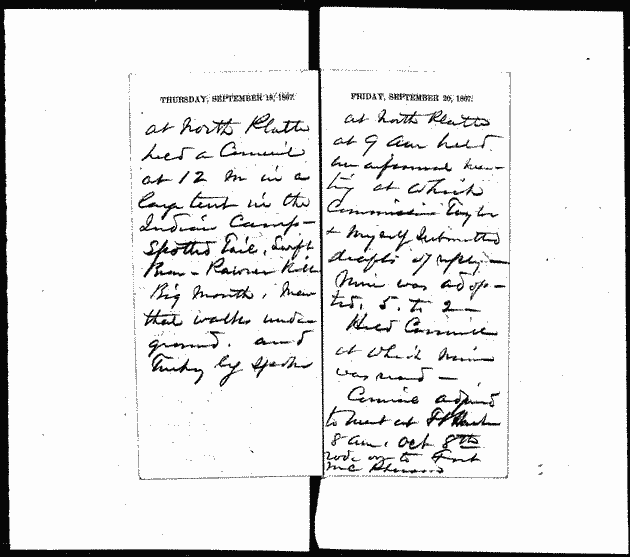 THURSDAY, SEPTEMBER 19, 1867.
at North Platte
held a Council
at 12 M in a
large tent in the
Indian Camp—
Spotted Tail, Swift
Bear — Pawnee Killer
Big Mouth, Man
that walks under
ground. and
Turkey leg spoke
FRIDAY, SEPTEMBER 20, 1867.
at North Platte
at 9 am held
an informal mee-
ting at which
Commissioner Taylor
& Myself Submitted
drafts of reply —
Mine was adop-
ted, 5. to 2 —
Held Council
at which mine
was read —
Council adjourned
to meet at Ft
8 am, Oct 8th
rode on to Fort
McPherson